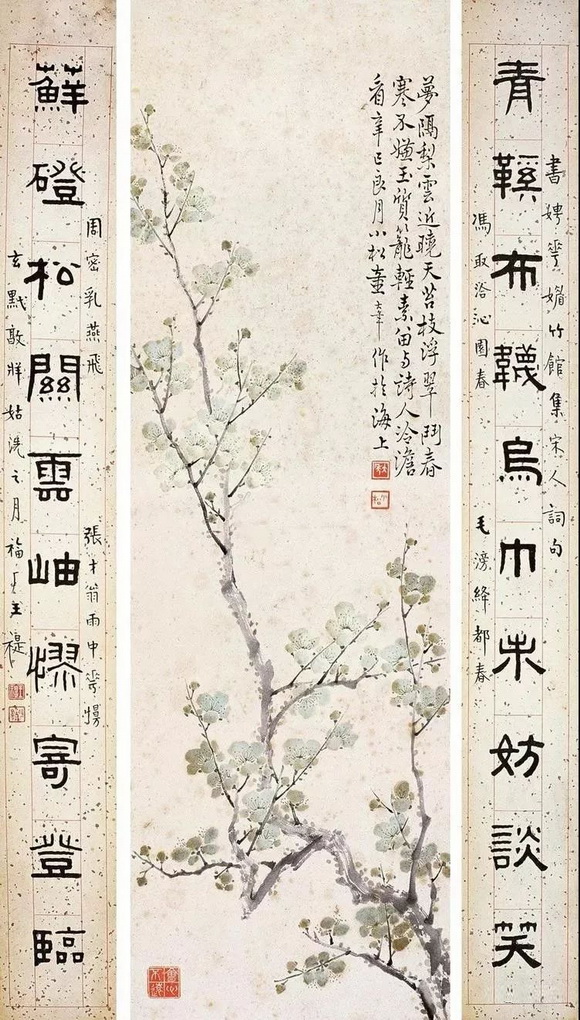 書娉花媚竹館集宋人詞句
青鞵布韈烏巾未妨談笑
馮取洽沁園春
毛滂絳都春
夢隔梨雲近曉天苔枝浮翠鬥春
寒不嫌玉質籠輕素留与詩人冷澹
看辛巳良月小松作於海上
周密乳燕飛
張才翁雨中花慢
蘚磴松關雲岫憀寄登臨
玄黓敦牂姑洗之月福厂王禔